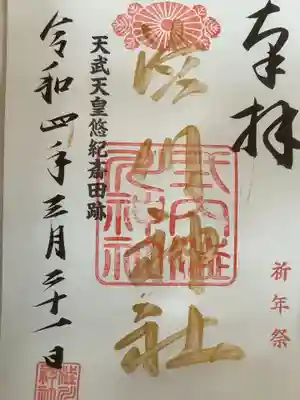 奉拝
祈年祭
渋川神社
天武天皇悠紀斎田跡
令和四年三月二十一日